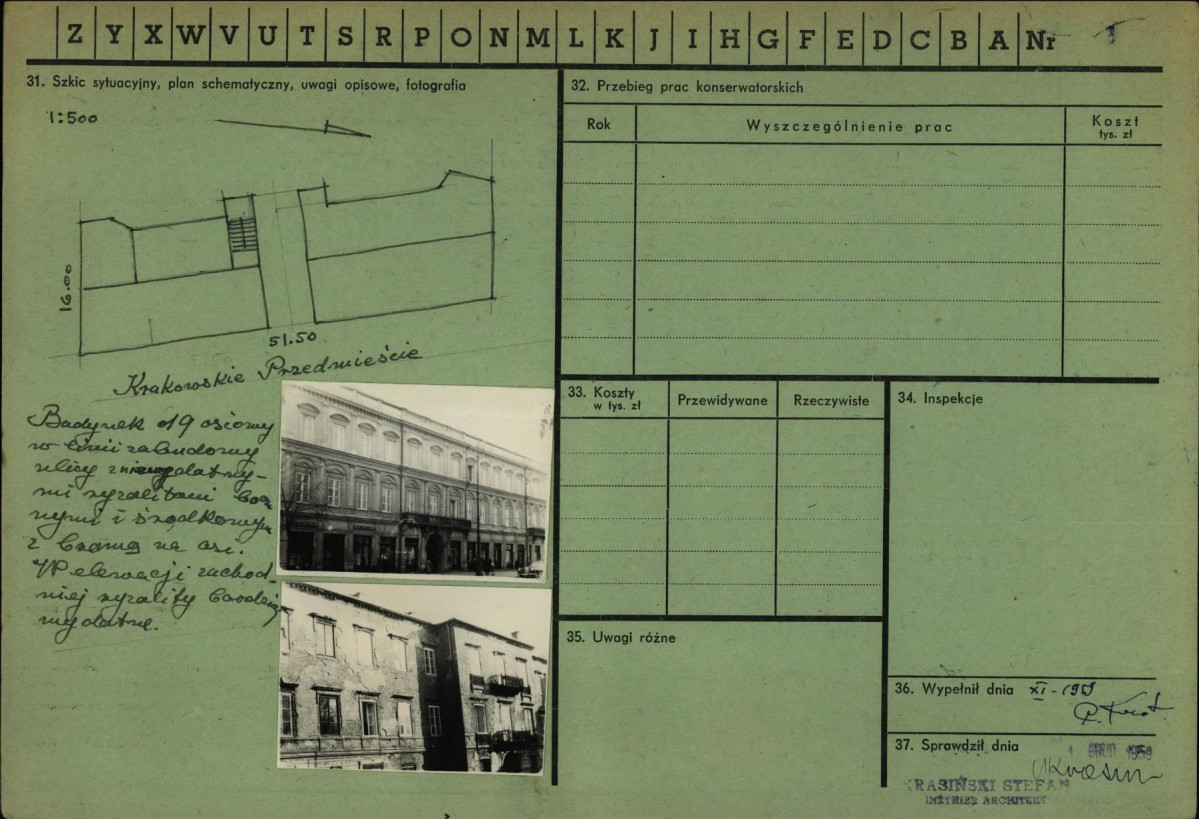 Z Y X W V U T S R P O N M L K J I H G F E D C B A Nr
31. Szkic sytuacyjny, plan schematyczny, uwagi opisowe, fotografia
1:500
16.00
51.50
Krakowskie Przedmieście
Budynek 19 osiowy
w linii zabudowy
ulicy z niewydatny-
mi ryzalitami bocz
nymi i środkowym
z bramą na osi.
W elewacji zachod-
niej ryzality bardziej
wydatne.
32. Przebieg prac konserwatorskich
Rok
Wyszczególnienie prac
Koszt
tys. zł
33. Koszty
w tys. zł
Przewidywane
Rzeczywiste
34. Inspekcje
35. Uwagi różne
36. Wypełnił dnia XI-1959
37. Sprawdził dnia
1959
KRASIŃSKI STEFAN
INŻYNIER ARCHITEKT